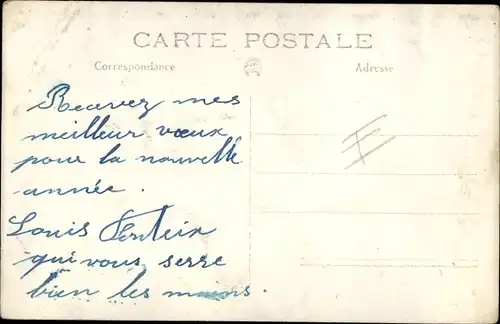 CARTE POSTALE
Correspondance
Adresse
Recevez mes
meilleur vœux
pour la nouvelle
année.
Louis
qui vous serre
bien les mains.